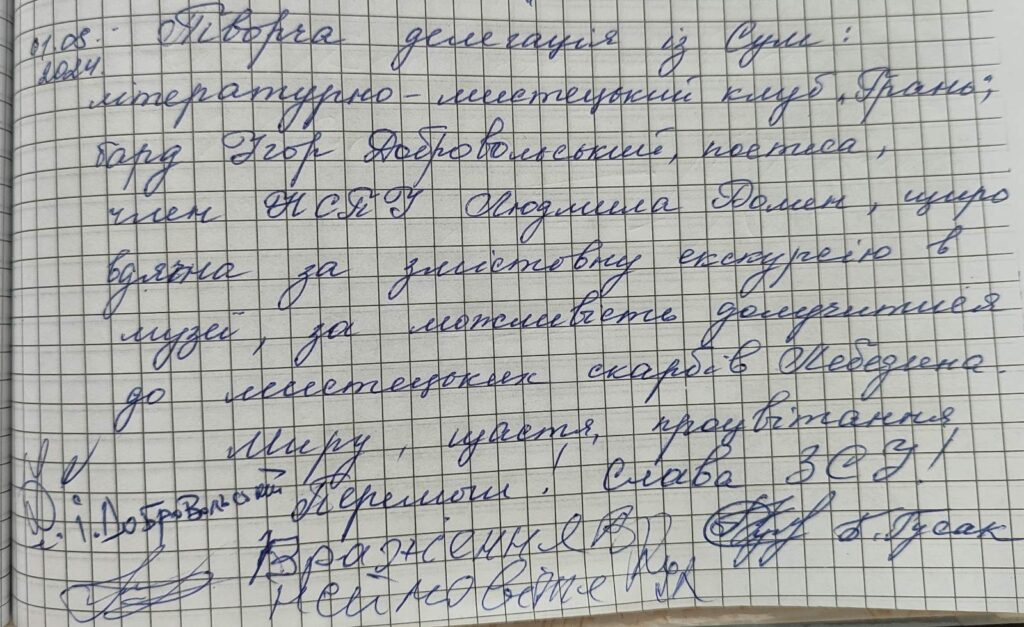 01.08. Творча делегація із Сум:
2024.
літературно-мистецький клуб „Грань",
бард Ігор Добровольський, поетеса,
член НСПУ Людмила Ромен, щиро
вдячна за змістовну екскурсію в
музей, за можливість долучитися
до мистецьких скарбів Лебедина.
Миру, щастя, процвітання,
Перемоги! Слава ЗСУ!
І. Добровольський
Враження Б. Гусак
неймовірне